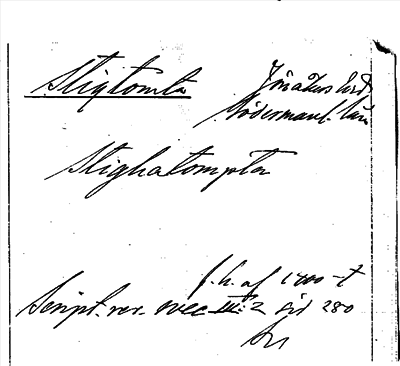 Stigtomta
Jönåkers hrd
Södermanl. län
Stighatompta
f.h. af 1400-t
Script. rer. svec III:2 sid 280